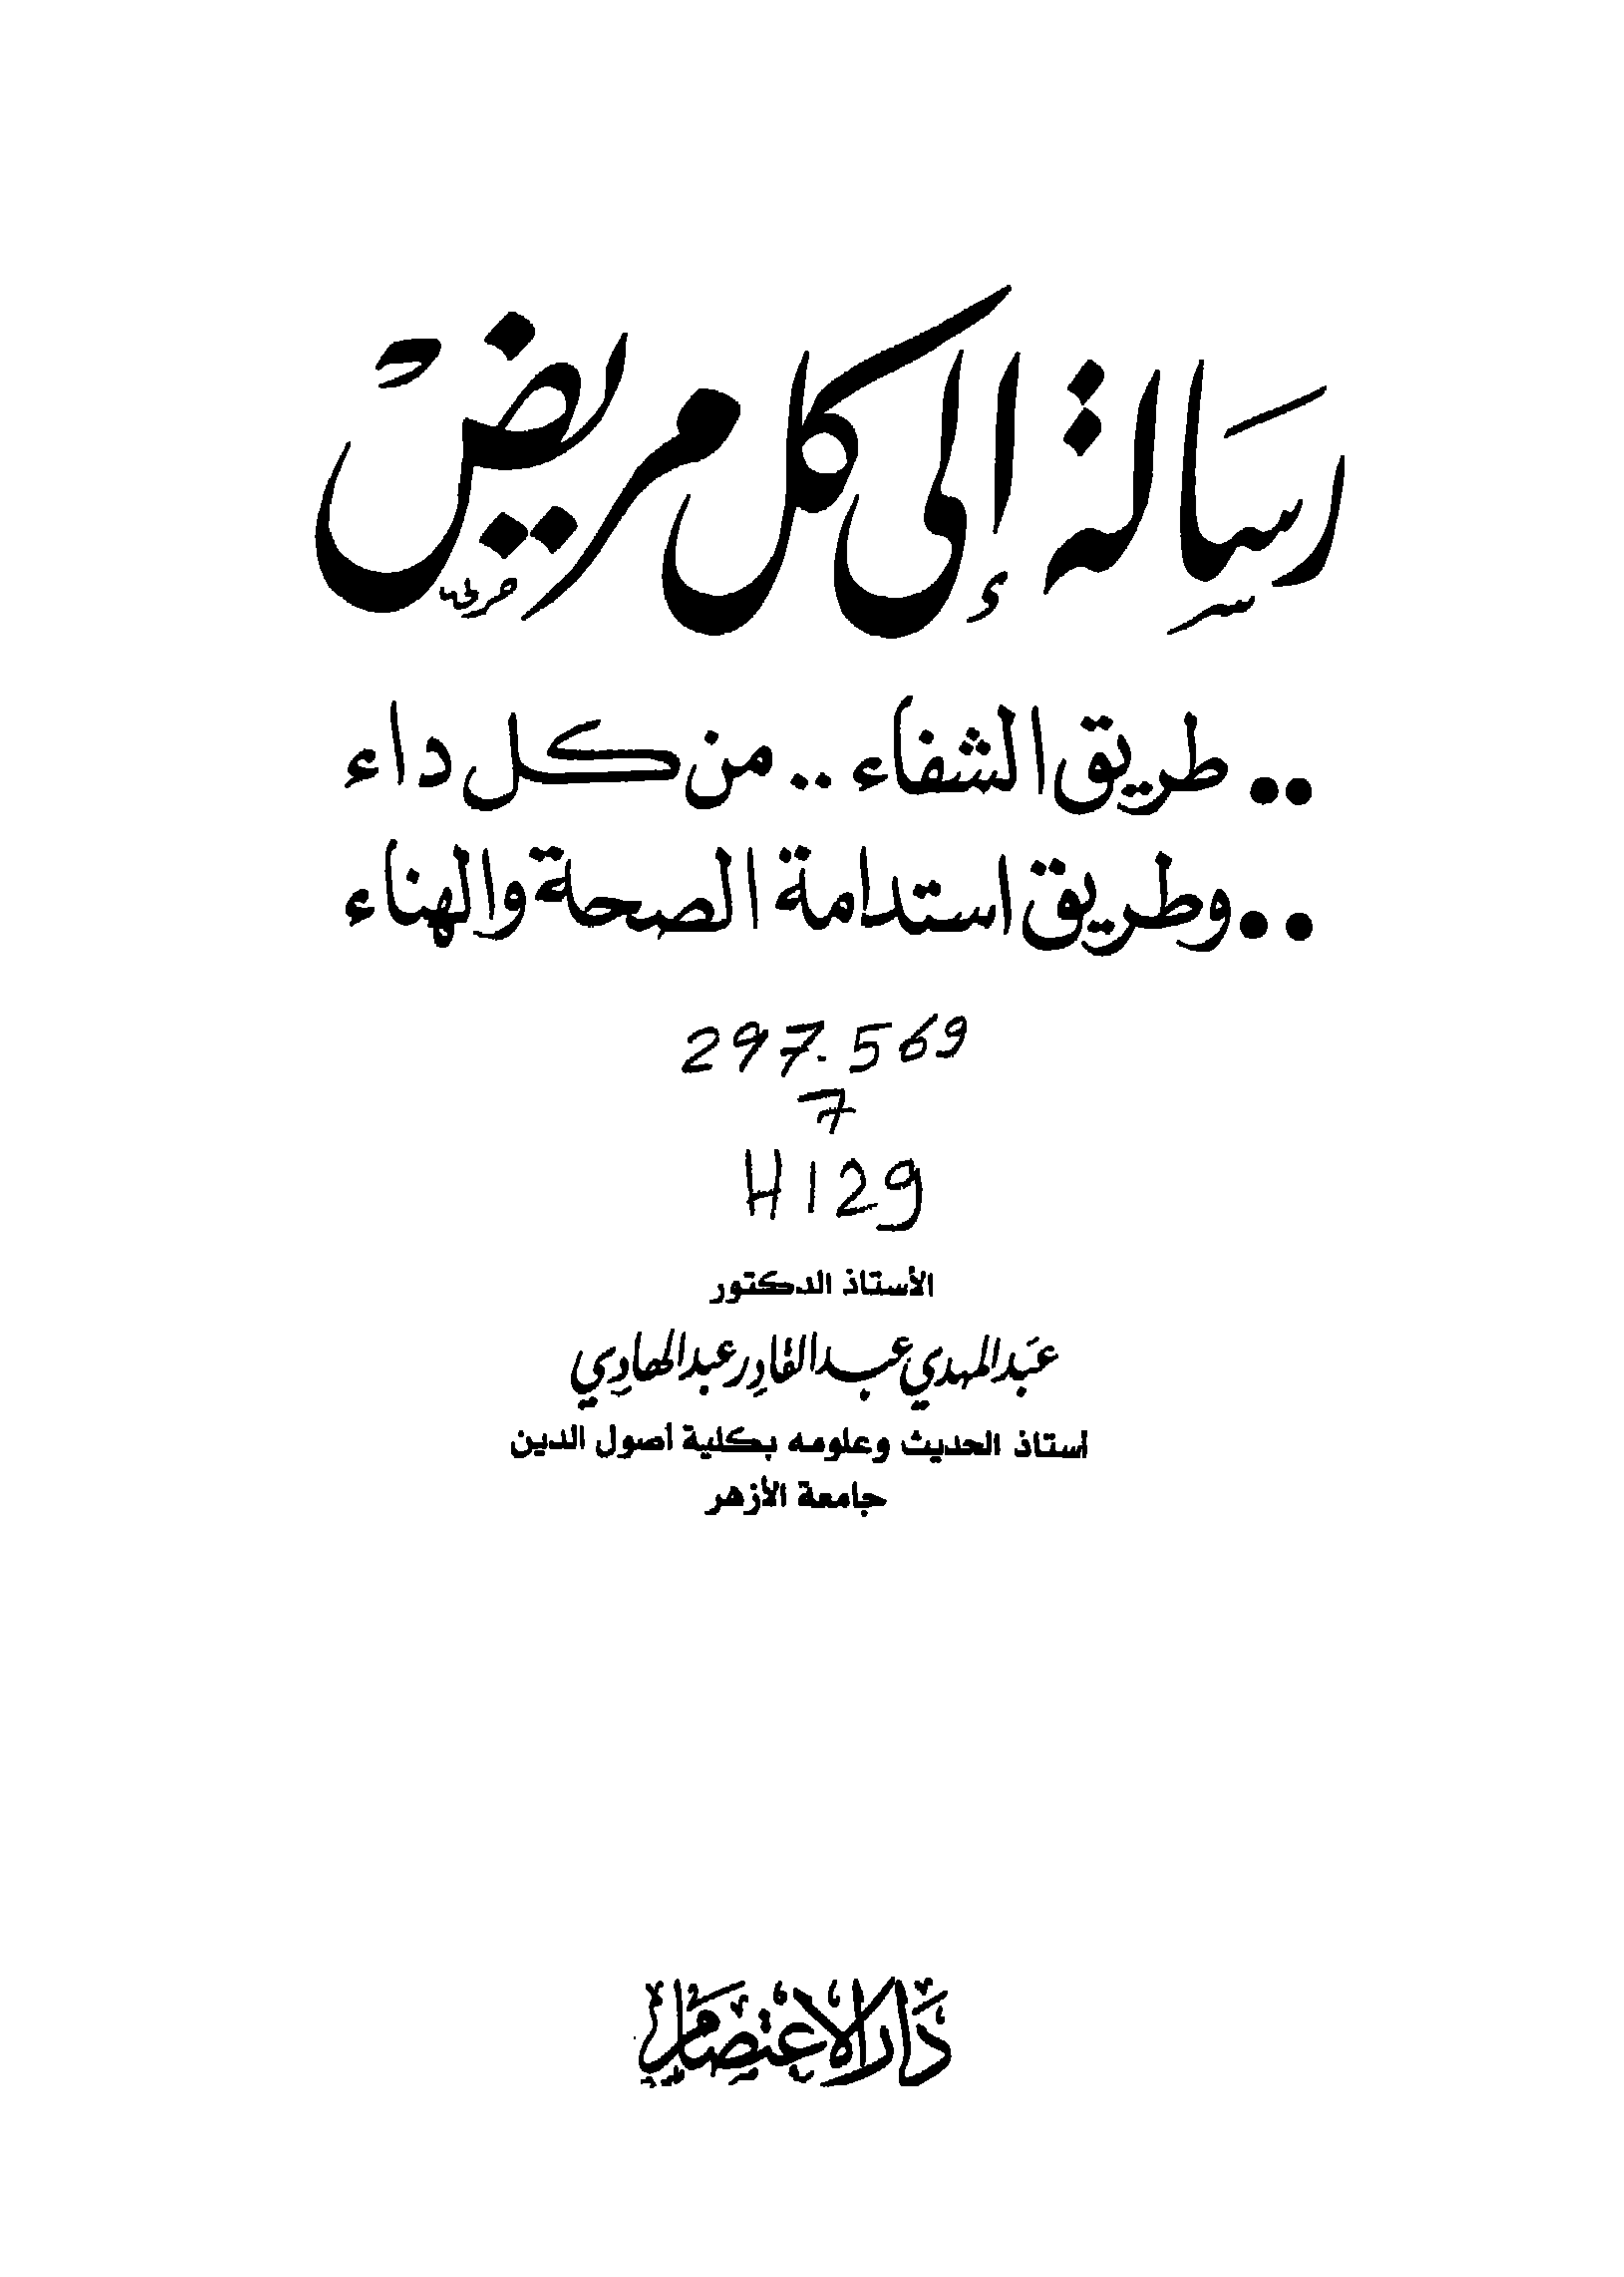 رسَالة إلى كل مريض
.. طريق الشفاء .. من كل داء
.. وطريق استدامة الصحة والهناء
297.569
7
H129
الأستاذ الدكتور
عبَد المهدي عبد القادر عبد الهادي
أستاذ الحديث وعلومه بكلية أصول الدين
جامعة الأزهر
دَار الاعتصام